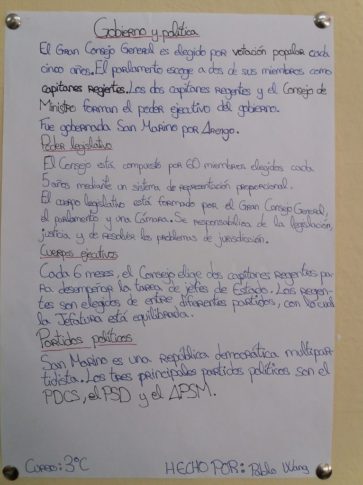 Gobierno y política
El Gran Consejo General es elegido por votación popular cada
cinco años. El parlamento escoge a dos de sus miembros como
capitanes regentes. Los dos capitanes regentes y el Consejo de
Ministro forman el poder ejecutivo del gobierno.
Fue gobernada San Marino por Arengo.
Poder legislativo
El Consejo está compuesto por 60 miembros elegidos cada
5 años mediante un sistema de representación proporcional.
El cuerpo legislativo está formado por el Gran Consejo General,
el parlamento y una Cámara. Se responsabiliza de la legislación,
justicia y de resolver los problemas de jurisdicción.
Cuerpos ejecutivos
Cada 6 meses, el Consejo elige dos capitanes Regentes pa-
ra desempeñar la tarea de jefes de Estado. Los Regen-
tes son elegidos de entre diferentes partidos, con lo cual
la Jefatura está equilibrada.
Partidos políticos
San Marino es una República democrática multipar-
tidista. Los tres principales partidos políticos son el
PDCS, el PSD y el APSM.
Curso: 3°C HECHO POR: Pablo Wang